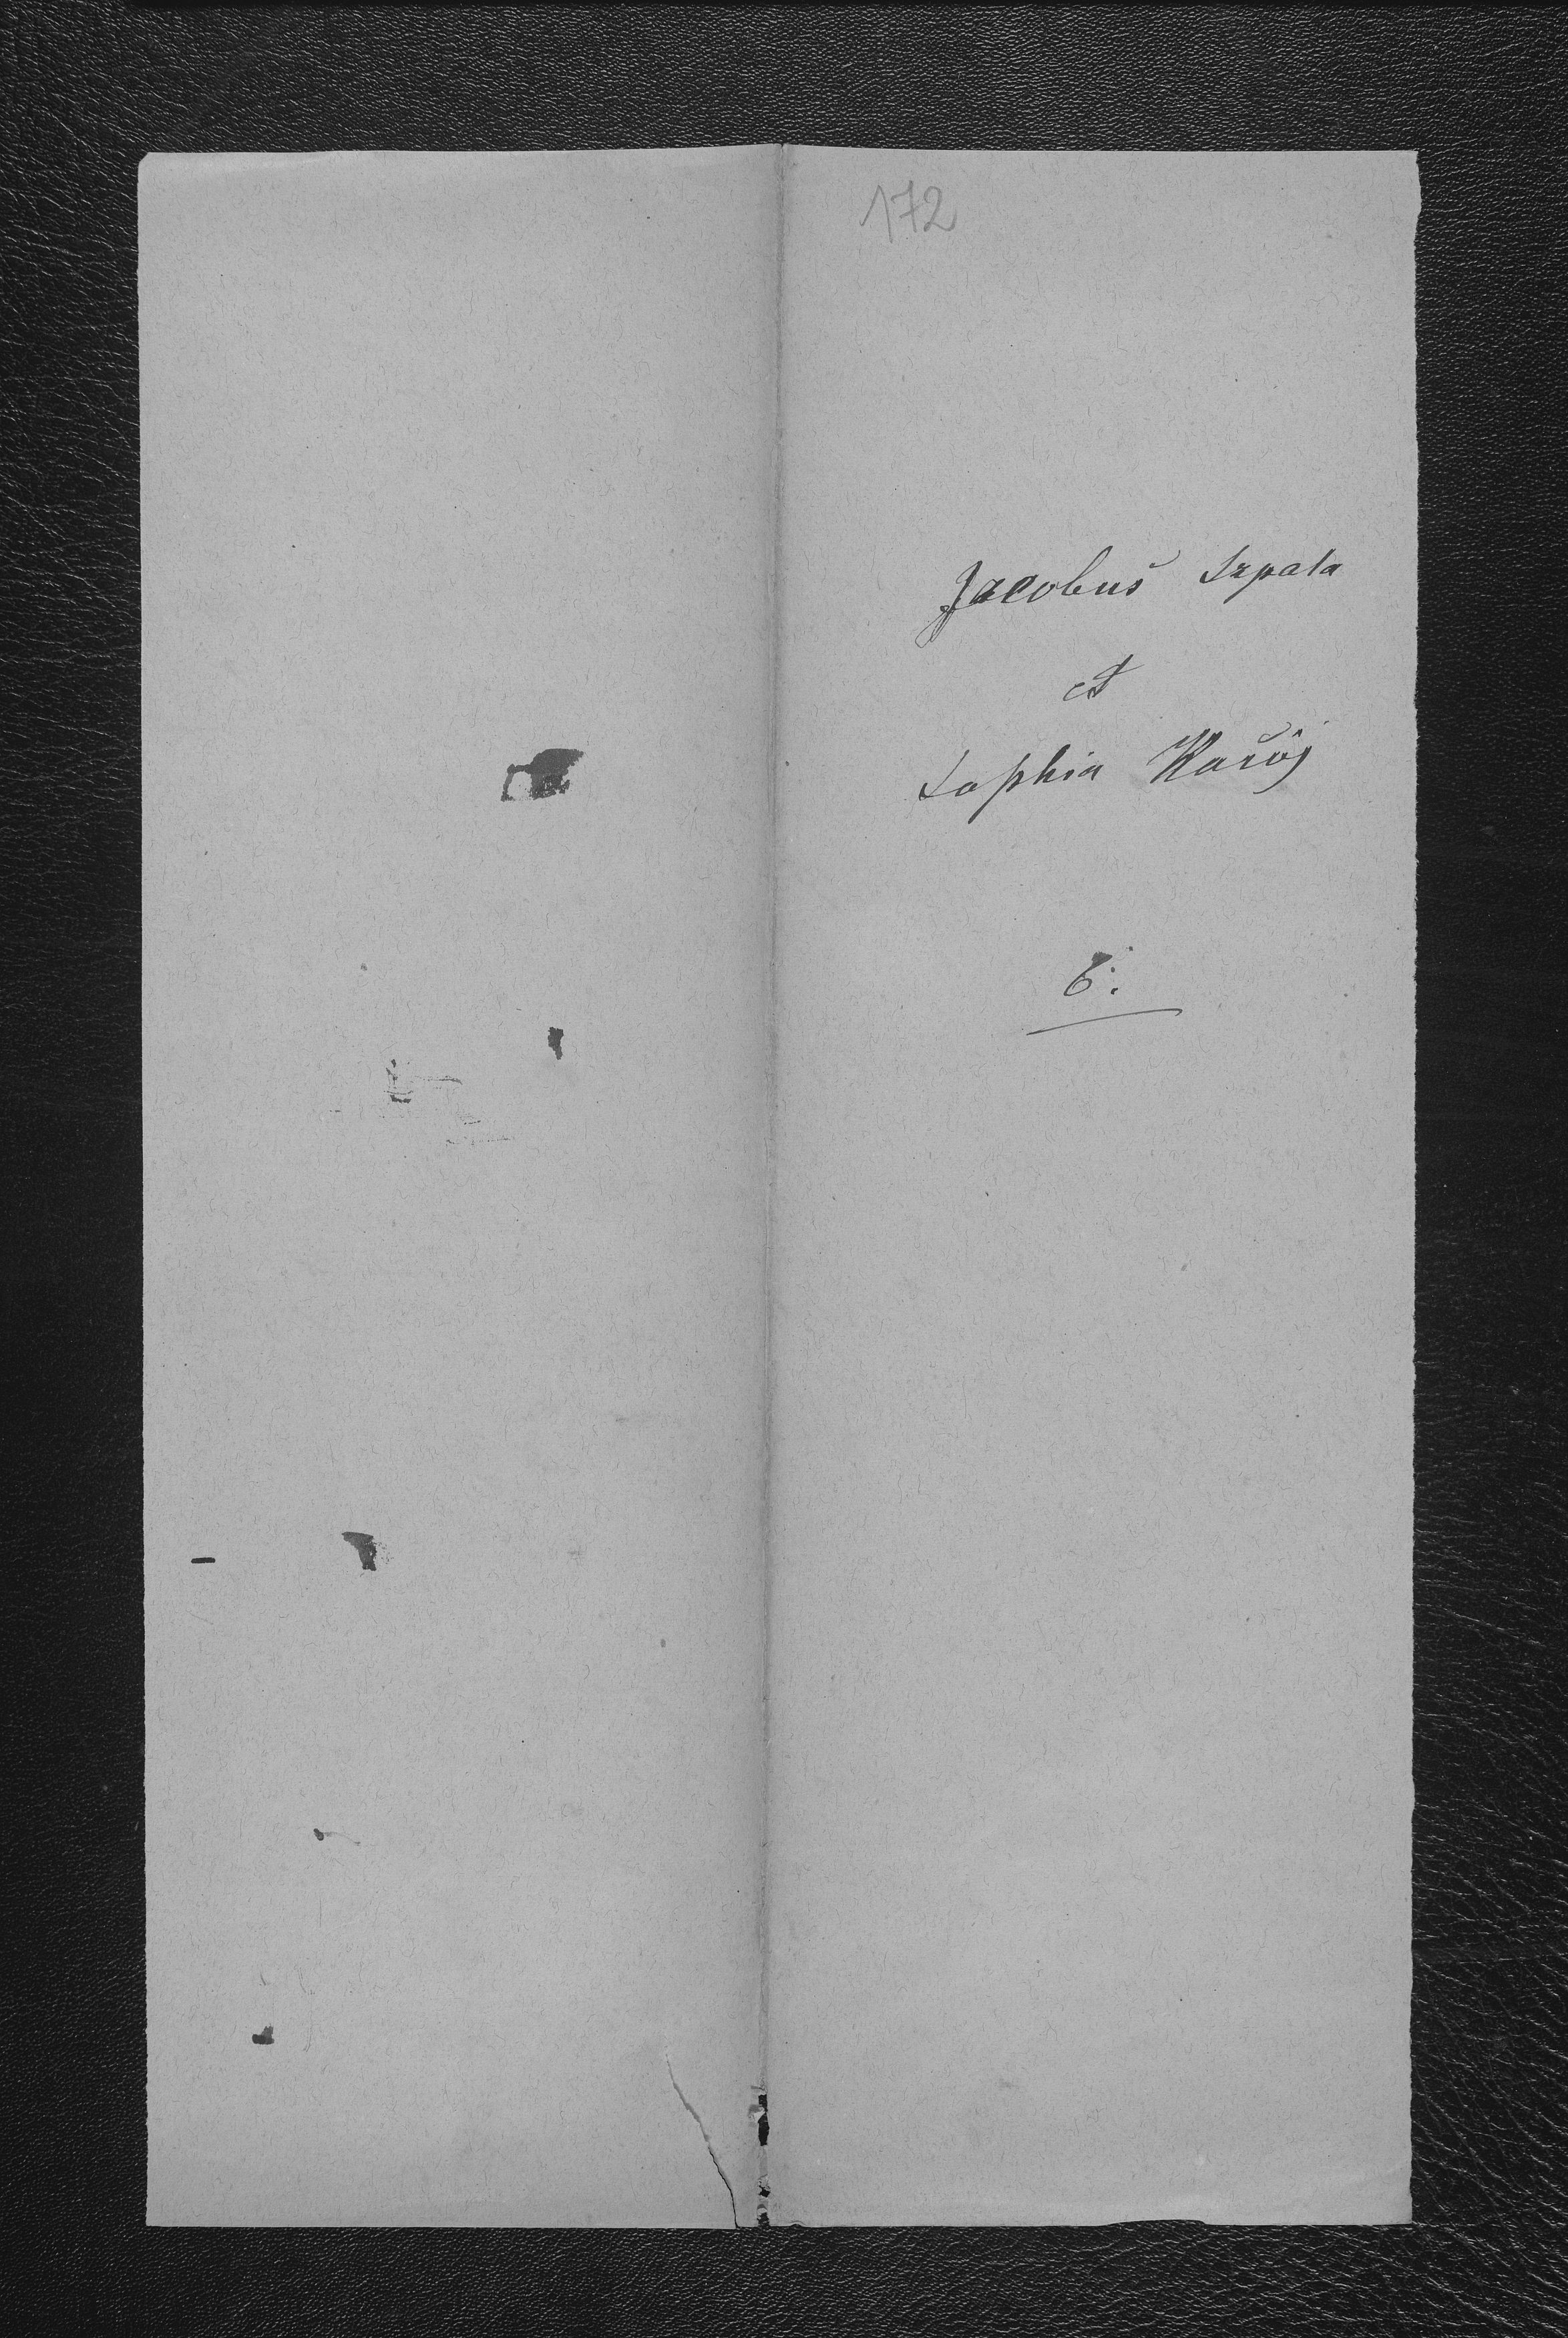 172
Jacobus Szpala
et
Sophia
6.